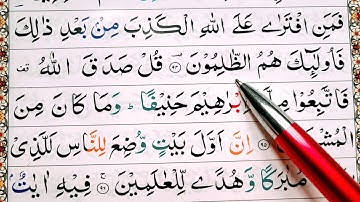 فَمَنِ افْتَرٰى عَلَى اللّٰهِ الْكَذِبَ مِنْ بَعْدِ ذٰلِكَ
فَاُولٰٓئِكَ هُمُ الظّٰلِمُوْنَ ۹۴ قُلْ صَدَقَ اللّٰهُ قف
فَاتَّبِعُوْا مِلَّةَ اِبْرٰهِيْمَ حَنِيْفًا ؕ وَمَا كَانَ مِنَ
الْمُشْرِكِيْنَ ۹۵ اِنَّ اَوَّلَ بَيْتٍ وُّضِعَ لِلنَّاسِ لَلَّذِيْ
مُبٰرَكًا وَّهُدًى لِّلْعٰلَمِيْنَ ۹۶ فِيْهِ اٰيٰتٌۢ